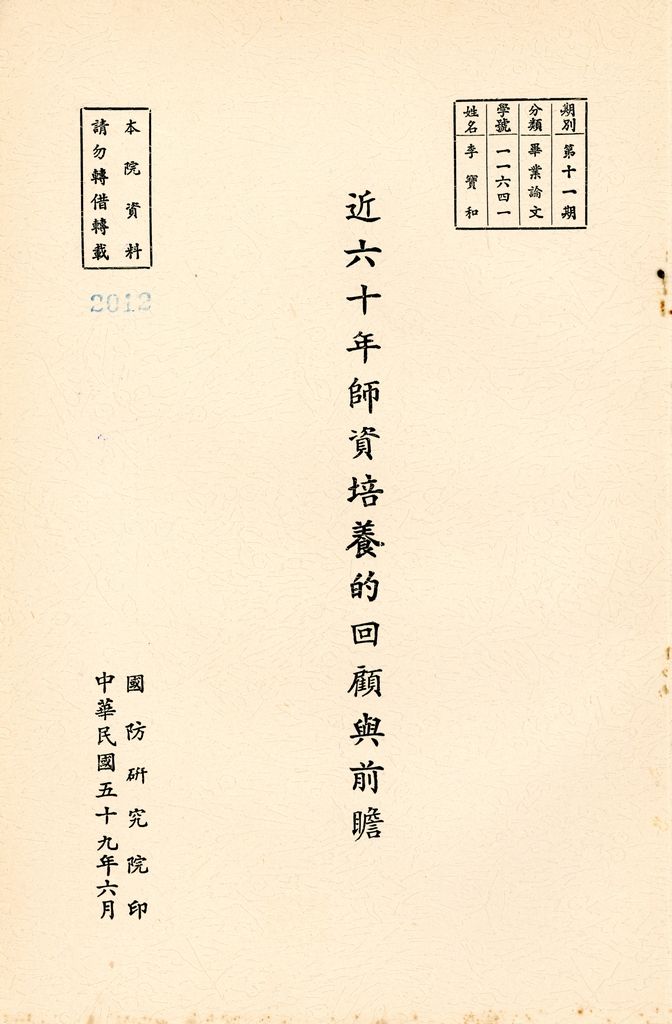 期別 第十一期
分類 畢業論文
學號 一一六四一
姓名 李寶和
近六十年師資培養的回顧與前瞻
本院資料
請勿轉借轉載
2012
國防研究院印
中華民國五十九年六月